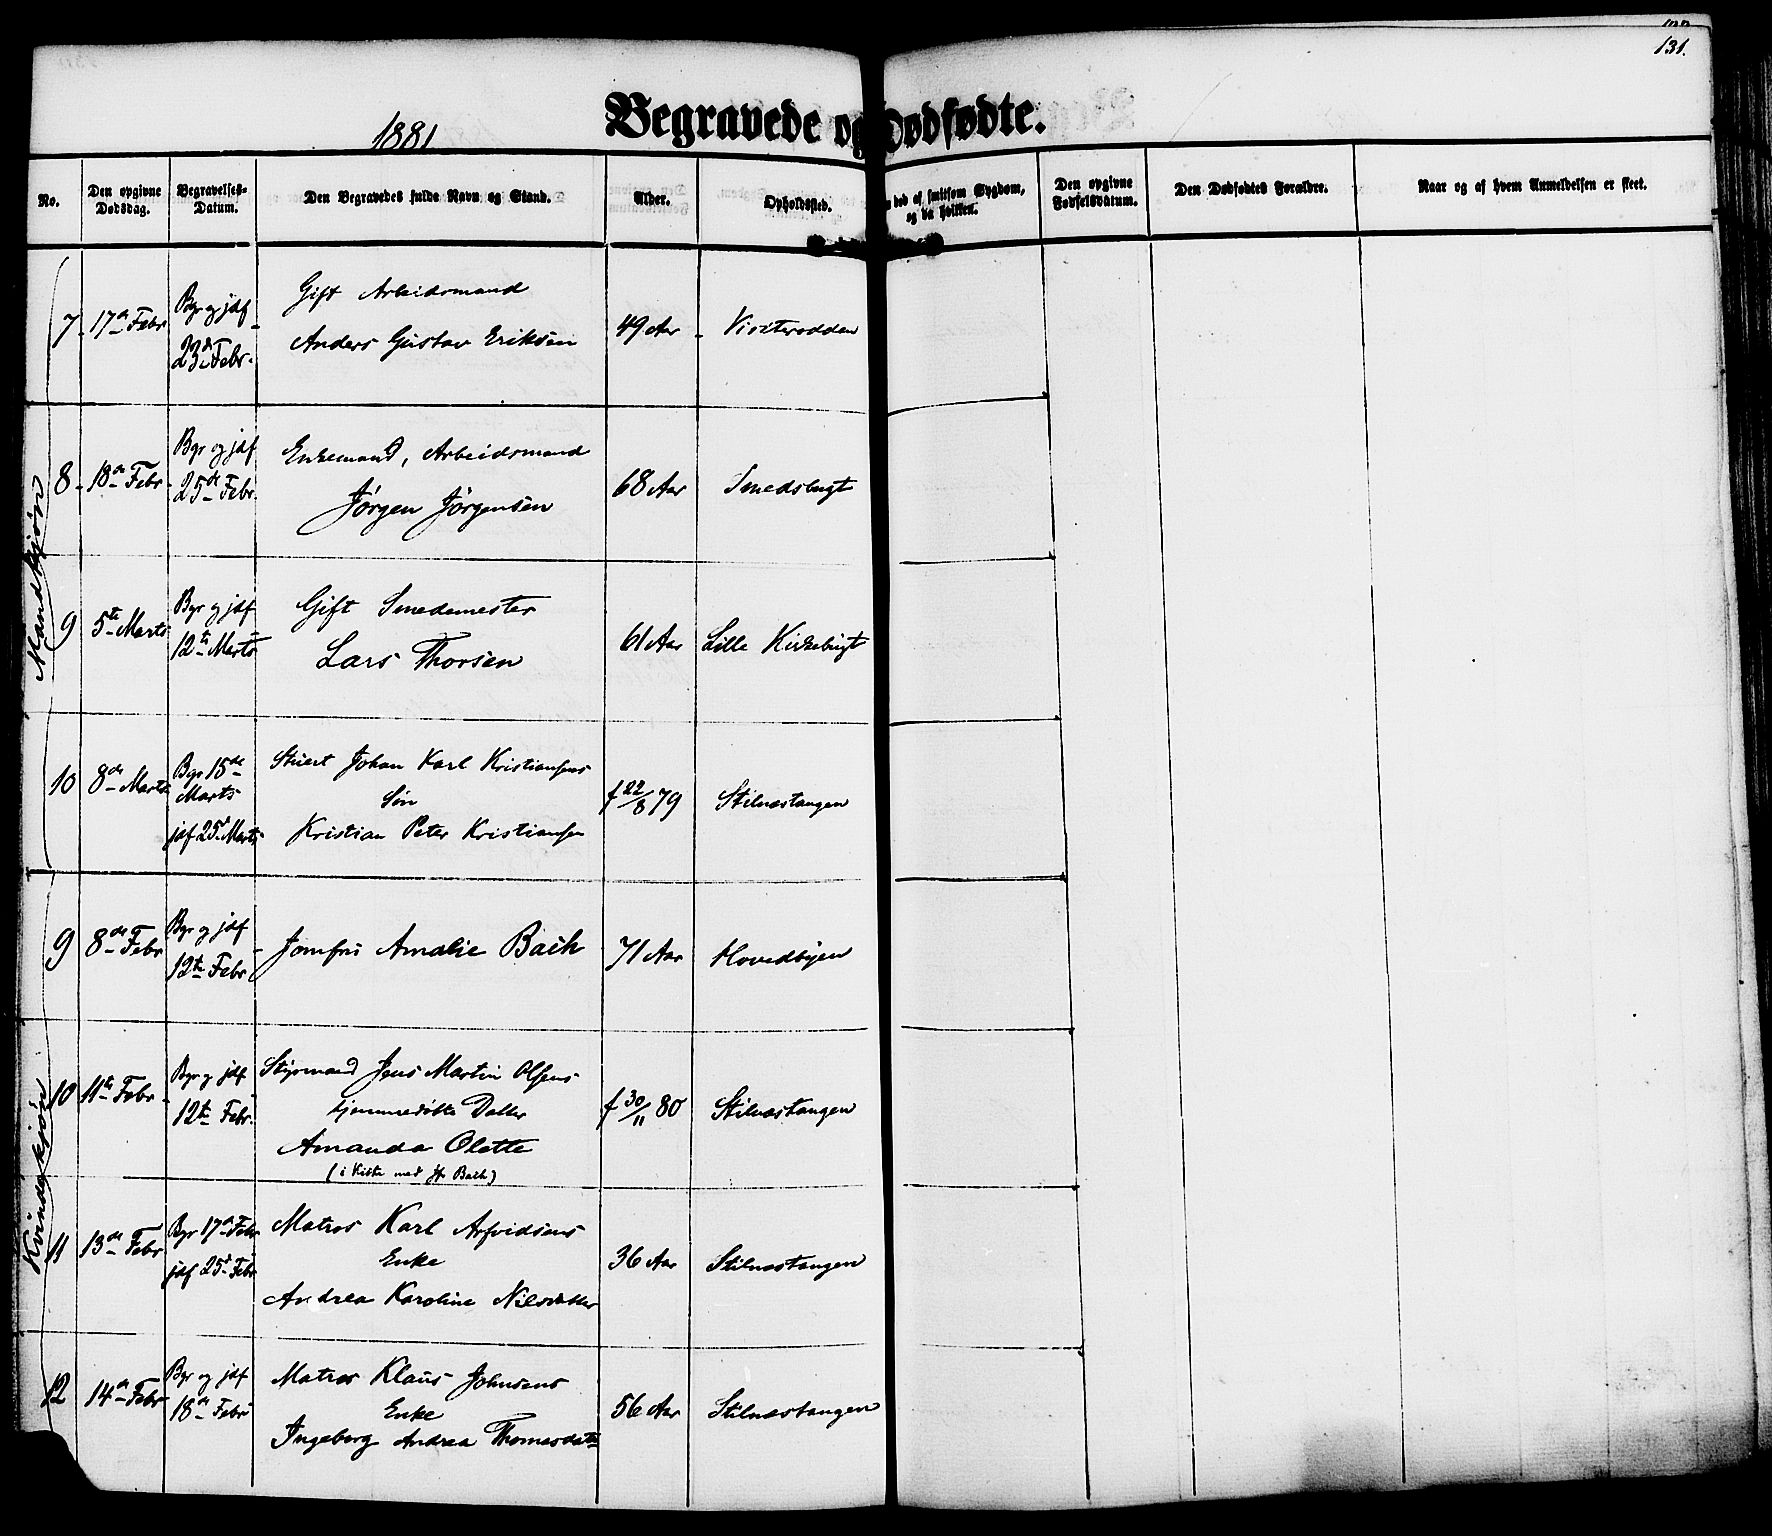 131.
1881
Begravede og Dødfødte.
No.
Den opgivne Dødsdag.
Begravelses-Datum.
Den Begravedes fulde Navn og Stand.
Alder.
Opholdssted.
død af smitsom Sygdom, og da hvilken.
Den opgivne Fødselsdatum.
Den Dødfødtes Forældre.
Naar og af hvem Anmeldelsen er skeet.
Mandkjøn
7. 17de Febr
Bgr og jdf 23de Febr.
Gift Arbeidsmand
Anders Gustav Eriksen
49 Aar
8. 18de Febr.
Bgr og jdf 25de Febr.
Enkemand, Arbeidsmand
Jörgen Jörgensen
68 Aar
Smedsbugt
9 5te Marts
Bgr og jdf 12te Marts
Gift Smedemester
Lars Thorsen
61 Aar
Lille Kirkebugt
10 8de Marts
Bgr 15de Marts
jdf 25d Marts
Stuert Johan Karl Kristiansens
Søn
Kristian Peter Kristiansen
f 22/8 79
Stilnæstangen
Kvindekjøn
9 8de Febr
Bgr og jdf 12te Febr
Jomfru Amalie Bach
71 Aar
Hovedbyen
10 11te Febr.
Bgr og jdf 12te Febr.
Styrmand Jens Martin Olsens
hjemmedøbte Datter
Amanda Olette
(i Kiste med Jfr Bach)
f 30/11 80
Stilnæstangen
11 13de Febr
Bgr 17de Febr
jdf 25d Febr
Matros Karl Arfvidsens
Enke
Andrea Karoline Nilsdatter
36 Aar
Stilnæstangen
12 14de Febr
Bgr og jdf 18de Febr
Matros Klaus Johnsens
Enke
Ingeborg Andrea Thomasdatter
56 Aar
Stilnæstangen